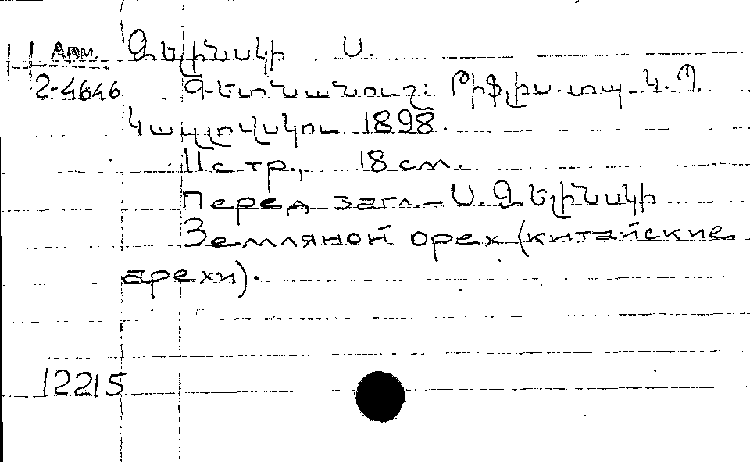 Арм. Զելինսկի Ս.
2-4646 Գետնանուշ: Թիֆլիս տպ. Կ. Պ.
Կազլովսկու 1898.
11 стр., 18 см.
Перед загл. – Ս. Զելինսկի
Земляной орех (китайские
орехи).
12215